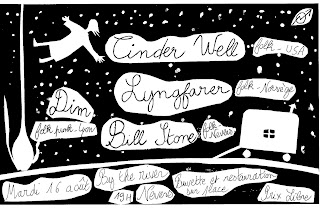 Cinder Well
folk - USA
Lyngfarer
folk - Norvège
Dim
folk punk - Lyon
Bill Stone
folk
Nevers
Mardi 16 août
By the river
19H Nevers
Buvette et restauration
sur place
Prix Libre